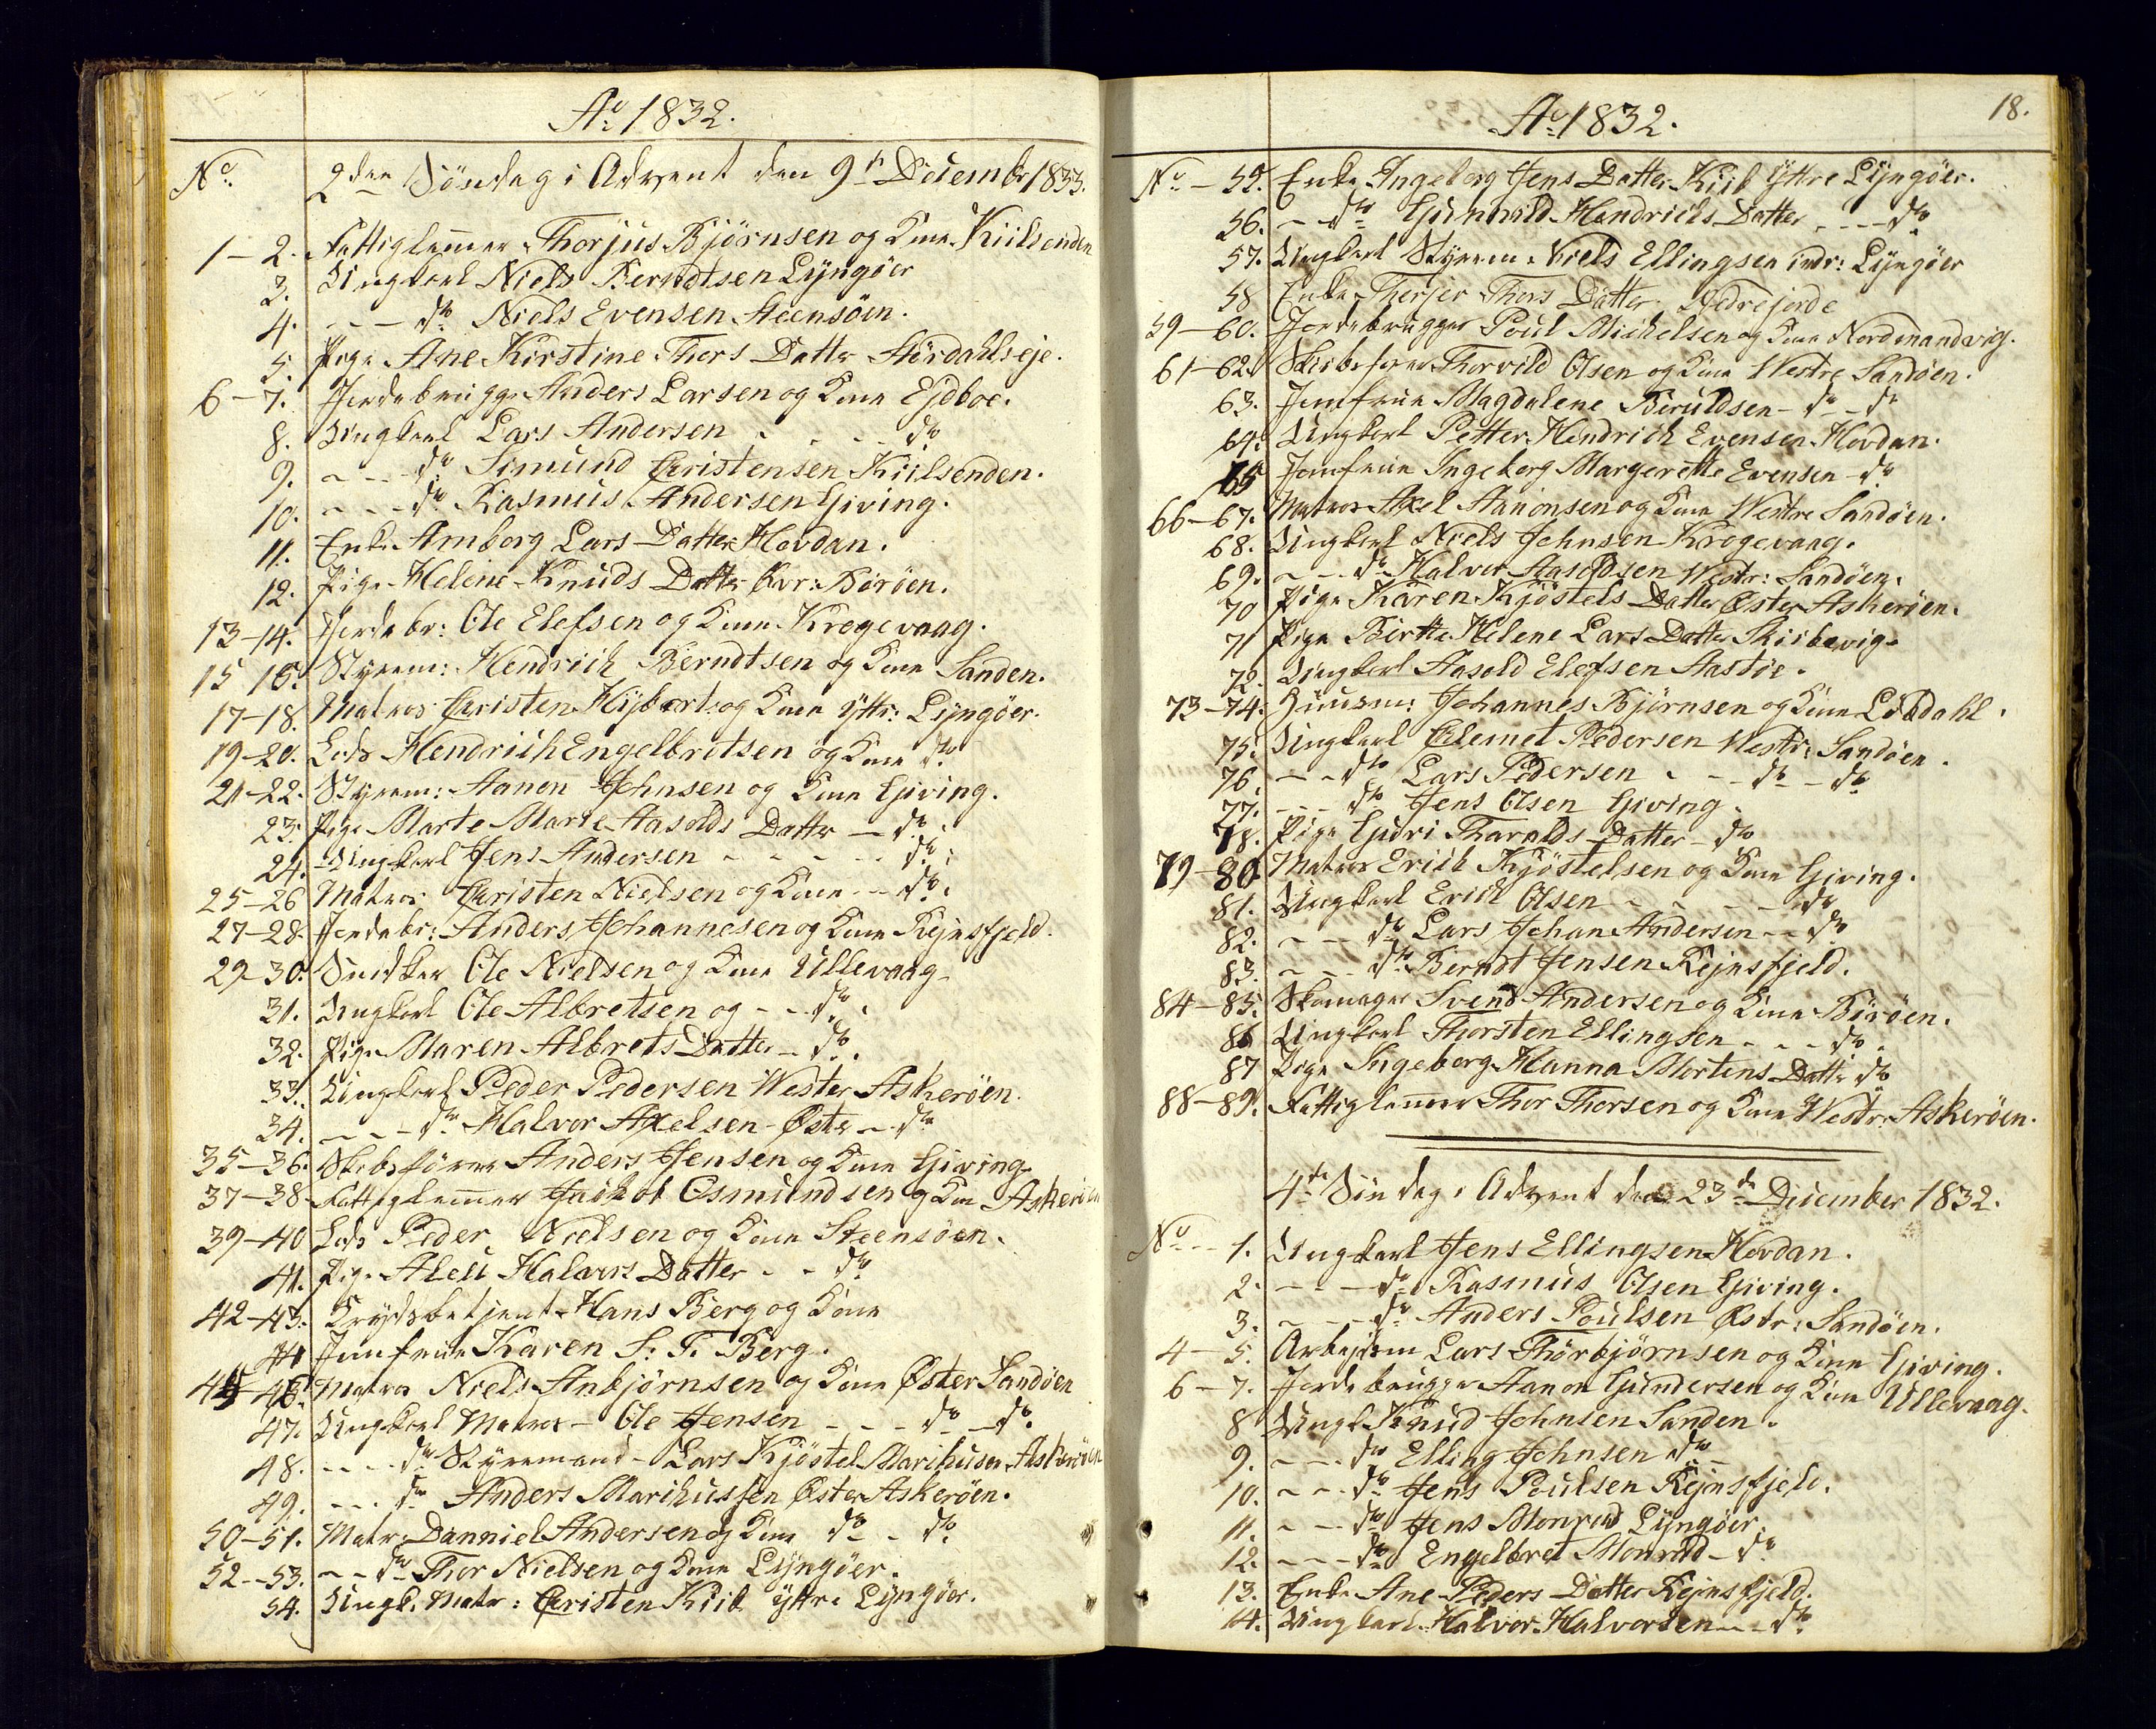 Ao 1832.
No. 2den Söndag i Advent den 9de Decembr 1833.
1-2. Fattiglemmer Thorjus Bjørnsen og Kone Kiilsenden
3. Ungkarl Niels Berndtsen Lyngöer
4. - - - do Niels Evensen Steensöen.
5. Pige Ane Kirstine Thors Datter Hördahlseje.
6-7. Jordebrugger Anders Larsen og Kone Ejdboe.
8. Ungkarl Lars Andersen - - - do
9. - - - do Simund Christensen Kiilsenden.
10. - - - do Rasmus Andersen Giving.
11. Enke Amborg Lars Datter Hovdan.
12. Pige Helene Knuds Datter Børöen.
13-14. Jordebr: Ole Elefsen og Kone Krogevaag.
15-16. Styrem: Hendrich Berndtsen og Kone Sanden.
17-18. Matros Christen Kijbert og Kone Yttr: Lyngöer.
19-20. Lods Hendrich Engelbretsen og Kone do
21-22. Styrem: Aanon Johnsen og Kone Giving.
23. Pige Marte Marie Aasolds Datter - do
24. Ungkarl Jens Andersen - - - - - do
25-26 Matros Christen Nielsen og Kone - - do
27-28. Jordebr: Anders Johannesen og Kone Rejnsfjeld.
29-30. Snidker Ole Nielsen og Kone Ullevaag
31. Ungkarl Ole Albretsen og - - do
32. Pige Maren Albrets Datter - do
33. Ungkarl Peder Pedersen Wester Askeröen.
34. - - - do Halvor Axelsen Øster - do
35-36. Skibsförer Anders Jensen og Kone Giving
37-38 Fattiglemmer Jachob Osmundsen og Kone Askeröen
39-40 Lods Peder Nielsen og Kone Steensöen.
41. Pige Aleti Halvors Datter - - do
42-43. Krydsbetjent Hans Berg og Kone
44 Jomfrue Karen S. F. Berg.
45-46. Matros Niels Anbjörnsen og Kone Øster Sandöen
47. Ungkarl Matros - Ole Jensen - - - do - do
48. - - - do Styrmand - Lars Kjöstel Marchusen Askeröen
49. - - - do Anders Marchussen Øster Askeröen.
50-51. Matr: Danniel Andersen og Kone do - do
52--53. - - do Thor Nielsen og Kone Lyngöer.
54. Ungk. Matr: Christen Kiil Yttre Lyngöer.
Ao 1832.
18.
No - 55. Enke Ingeborg Jens Datter Kiil Yttre Lyngöer.
56. - - do Gunnild Hendrichs Datter - - - do
57. Ungkarl Styrem: Niels Ellingsen indr: Lyngöer
58 Enke Therjer Thors Datter Nedrejorde
59-60. Jordebrugger Poul Michelsen og Kone Nordmandvig.
61-62. Skibsförer Thorvild Olsen og Kone Westre Sandöen.
63. Jomfrue Magdalene Beruldsen - do - do
64. Ungkarl Petter Hendrich Evensen Hovdan.
65 Jomfrue Ingeborg Margerethe Evensen - do
66-67. Matros Axel Aanonsen og Kone Westre Sandöen.
68. Ungkarl Niels Johnsen Krogevaag.
69. - - - do Halvor Aasoldsen Westr: Sandöen.
70 Pige Karen Kjöstels Datter Øster Askeröen.
71 Pige Birthe Helene Lars Datter Skiibevig
72. Ungkarl Aasold Elefsen Aastöe.
73-74. Huusm: Johannes Bjørnsen og Kone Löbdahl.
75. Ungkarl Clemet Pedersen Westr: Sandöen.
76. - - do Lars Pedersen - - - do - do
77. - - - do Jens Olsen Giving.
78. Pige Guri Tharalds Datter - do
79-80 Matros Erich Kjöstelsen og Kone Giving.
81. Ungkarl Erich Olsen - - - - - do
82. - - - do Lars Johan Andersen - - do
83. - - - do Berndt Jensen Rejnsfjeld.
84-85. Skomager Svend Andersen og Kone Böröen.
86 Ungkarl Thorsten Ellingsen - - - do
87 Pige Ingeborg Hanna Mortens Datter do
88-89. Fattiglemmer Thor Thorsen og Kone Westr: Askeröen.
4de Söndag i Advent den 23de December 1832.
No - - 1. Ungkarl Jens Ellingsen Hovdan.
2. - - - do Rasmus Olsen Giving.
3. - - - do Anders Poulsen Østr: Sandöen.
4-5. Arbejdsm Lars Thörbjörnsen og Kone Giving.
6-7. Jordebrugger Aanon Gundersen og Kone Ullevaag.
8 Ungk Knud Johnsen Sanden.
9. - - - do Elling Johnsen do
10. - - - do Jens Poulsen Rejnsfjeld.
11. - - - do Jens Monrad Lyngöer.
12. - - - do Engelbret Monrad - do
13. Enke Ane Peders Datter Rejnsfjeld.
14. Ungkarl Halvor Halvorsen - - do